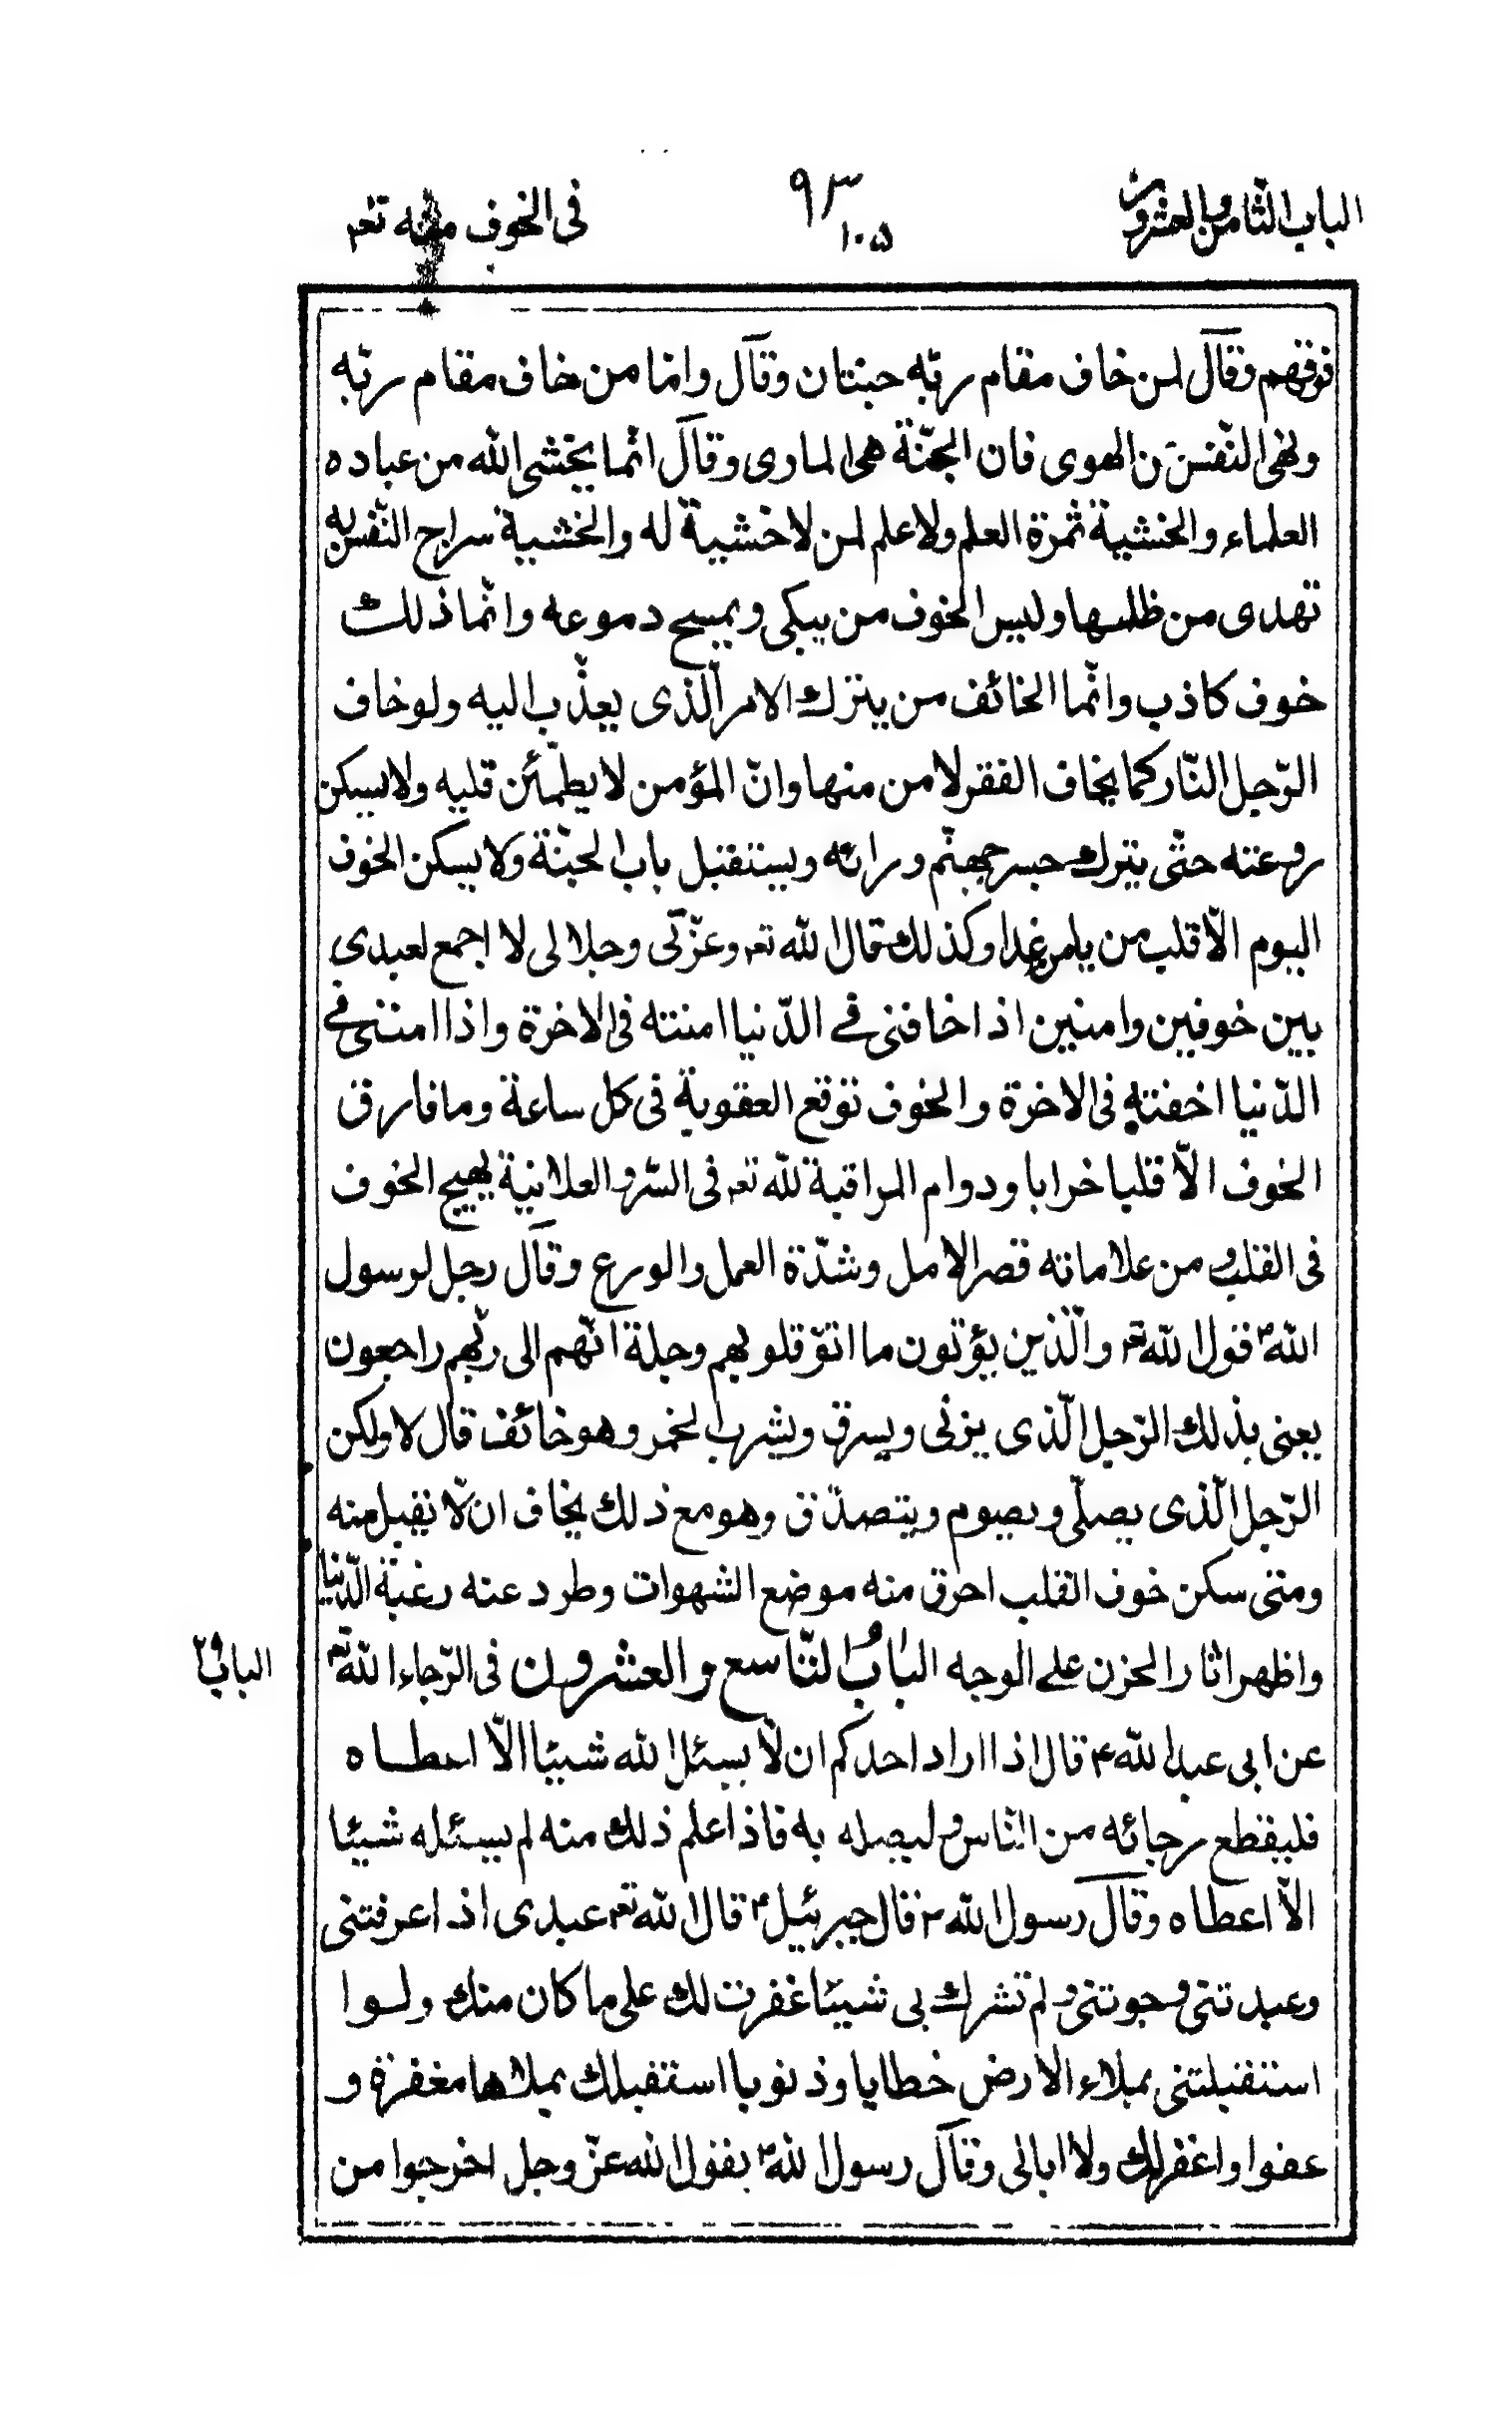 الباب الثامن والعشرون
٩٣
١٠٥
فى الخوف منه تعم
فوقهم وقال لمن خاف مقام ربّه جنتان وقال وامّا من خاف مقام ربّه
ونهى النّفس عن الهوى فان الجنّة هى الماوى وقال انّما يخشى الله من عباده
العلماء والخشية ثمرة العلم ولا علم لمن لا خشية له والخشية سراج النّفس به
تهدى من ظلمتها وليس الخوف من يبكى ويمسح دموعه وانّما ذلك
خوف كاذب وانّما الخائف من يترك الامر الّذى يعذّب اليه ولو خاف
الرّجل النّار كما يخاف الفقر لا من منها وانّ المؤمن لا يطمّئن قلبه ولا يسكن
روعته حتّى يترك جسر جهنّم ورائه ويستقبل باب الجنّة ولا يسكن الخوف
اليوم الّا قلب من يامن غدا وكذلك قال الله تعم وعزّتى وجلالى لا اجمع لعبدى
بين خوفين وامنين اذا خافنى فى الدّنيا امنته فى الاخرة واذا امننى فى
الدّنيا اخفته فى الاخرة والخوف توقع العقوبة فى كل ساعة وما فارق
الخوف الّا قلبا خرابا ودوام المراقبة لله تعم فى السّر والعلانية يهيج الخوف
فى القلب و من علاماته قصر الامل وشدّة العمل والورع وقال رجل لرسول
الله ص قول الله تعم والّذين يؤتون ما اتوّ قلوبهم وجلة انّهم الى ربّهم راجعون
يعنى بذلك الرّجل الّذى يزنى ويسرق ويشرب الخمر وهو خائف قال لا ولكن
الرّجل الّذى يصلّى ويصوم ويتصدّق وهو مع ذلك يخاف ان لّا تقبل منه
ومتى سكن خوف القلب احرق منه موضع الشهوات وطرد عنه رغبة الدّنيا
واظهر اثار الحزن على الوجه الباب التّاسع والعشرون فى الرّجاء الله تعم
الباب ٢٩
عن ابى عبد الله ع قال اذا اراد احدكم ان لا يسئل الله شيئا الّا اعطاه
فليقطع رجائه من النّاس وليصله به فاذا علم ذلك منه لم يسئله شيئا
الّا اعطاه وقال رسول الله ص قال جبرئيل ع قال الله تعم عبدى اذا عرفتنى
وعبدتنى و رجوتنى و لم تشرك بى شيئا غفرت لك على ما كان منك ولوا
استقبلتنى بملاء الارض خطايا وذنوبا استقبلك بملاها مغفرة و
عفوا واغفر لك ولا ابالى وقال رسول الله ص يقول الله عزّ وجل اخرجوا من